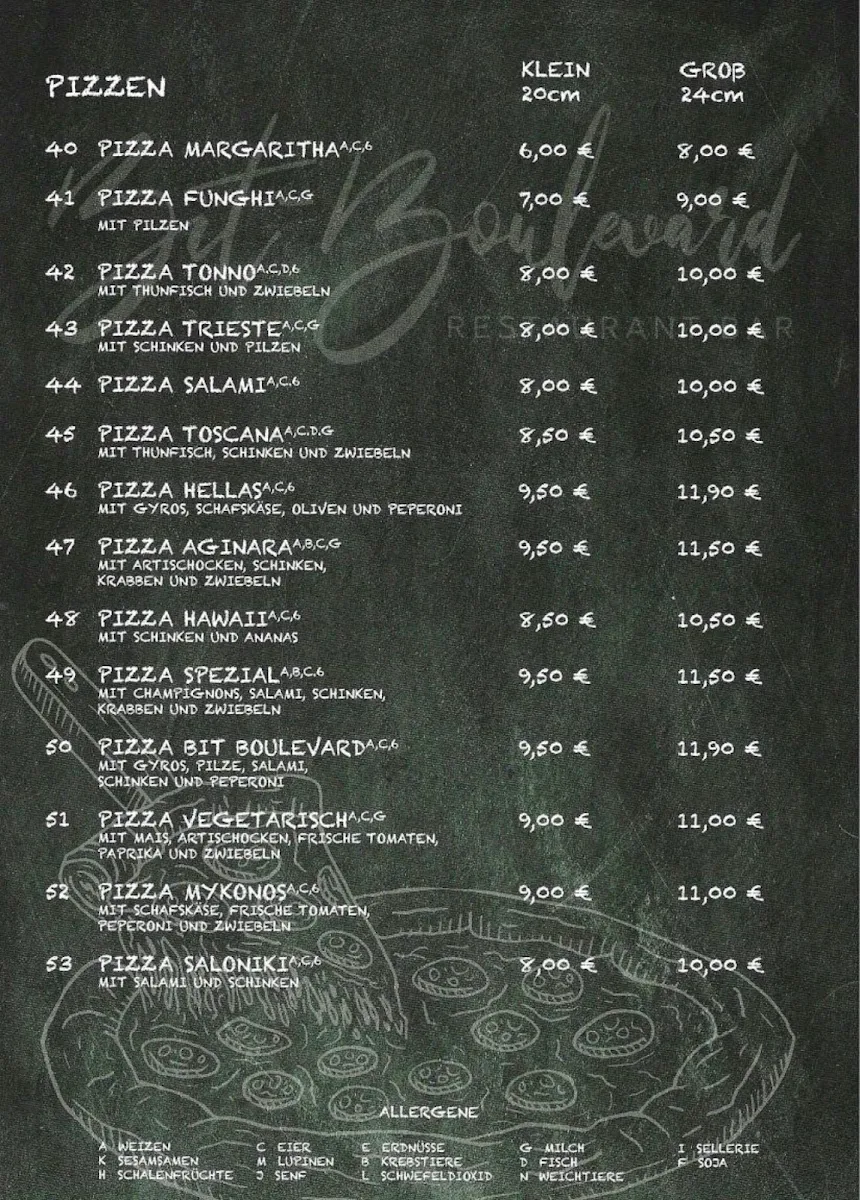 PIZZEN
KLEIN GROß
20cm 24cm
40 PIZZA MARGARITHA A,C,6 6,00 € 8,00 €
41 PIZZA FUNGHI A,C,G 7,00 € 9,00 €
MIT PILZEN
Bit Boulevard
42 PIZZA TONNO A,C,D,6 8,00 € 10,00 €
MIT THUNFISCH UND ZWIEBELN
43 PIZZA TRIESTE A,C,G 8,00 € 10,00 €
RESTAURANT BAR
MIT SCHINKEN UND PILZEN
44 PIZZA SALAMI A,C,6 8,00 € 10,00 €
45 PIZZA TOSCANA A,C,D,G 8,50 € 10,50 €
MIT THUNFISCH, SCHINKEN UND ZWIEBELN
46 PIZZA HELLAS A,C,6 9,50 € 11,90 €
MIT GYROS, SCHAFSKÄSE, OLIVEN UND PEPERONI
47 PIZZA AGINARA A,B,C,G 9,50 € 11,50 €
MIT ARTISCHOCKEN, SCHINKEN,
KRABBEN UND ZWIEBELN
48 PIZZA HAWAII A,C,6 8,50 € 10,50 €
MIT SCHINKEN UND ANANAS
49 PIZZA SPEZIAL A,B,C,6 9,50 € 11,50 €
MIT CHAMPIGNONS, SALAMI, SCHINKEN,
KRABBEN UND ZWIEBELN
50 PIZZA BIT BOULEVARD A,C,6 9,50 € 11,90 €
MIT GYROS, PILZE, SALAMI,
SCHINKEN UND PEPERONI
51 PIZZA VEGETARISCH A,C,G 9,00 € 11,00 €
MIT MAIS, ARTISCHOCKEN, FRISCHE TOMATEN,
PAPRIKA UND ZWIEBELN
52 PIZZA MYKONOS A,C,6 9,00 € 11,00 €
MIT SCHAFSKÄSE, FRISCHE TOMATEN,
PEPERONI UND ZWIEBELN
53 PIZZA SALONIKI A,C,6 8,00 € 10,00 €
MIT SALAMI UND SCHINKEN
ALLERGENE
A WEIZEN C EIER E ERDNÜSSE G MILCH I SELLERIE
K SESAMSAMEN M LUPINEN B KREBSTIERE D FISCH F SOJA
H SCHALENFRÜCHTE J SENF L SCHWEFELDIOXID N WEICHTIERE